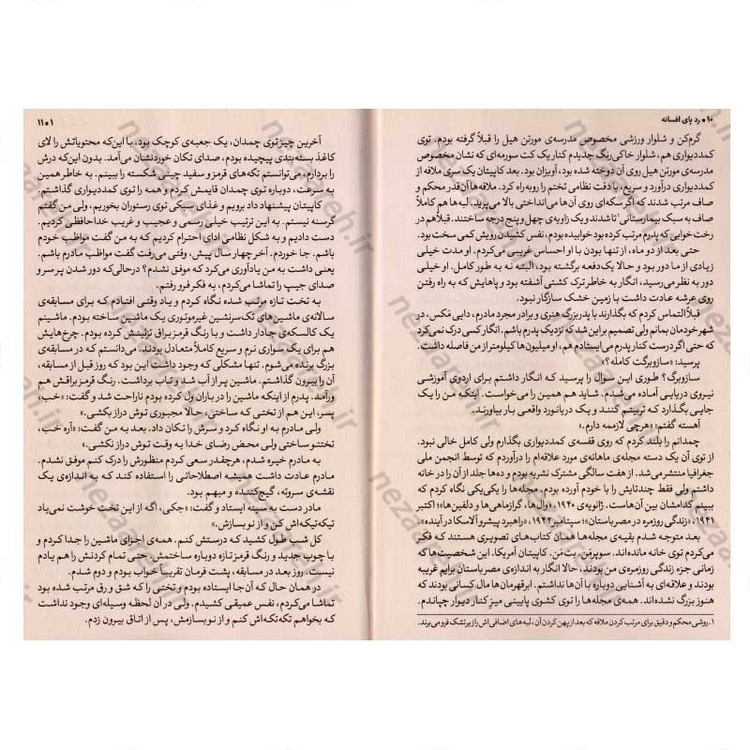 ۱۰ • رد پای افسانه
گرم‌کن و شلوار ورزشی مخصوص مدرسه‌ی مورتن هیل را قبلاً گرفته بودم. توی
کمددیواری هم، شلوار خاکی‌رنگ جدیدم کنار یک کت سورمه‌ای که نشان مخصوص
مدرسه‌ی مورتن هیل روی آن دوخته شده بود، آویزان بود. بعد کاپیتان یک سری ملافه از
کمددیواری درآورد و سریع، با دقت نظامی تختم را روبه‌راه کرد. ملافه‌ها آن‌قدر محکم و
صاف مرتب شدند که اگر سکه‌ای روی آن‌ها می‌انداختی بالا می‌پرید. لبه‌ها هم کاملاً
صاف به سبک بیمارستانی۱ تا شدند و یک زاویه‌ی چهل و پنج درجه ساختند. قبلاً هم در
رخت خوابی که پدرم مرتب کرده بود خوابیده بودم، نفس کشیدن رویش کمی سخت بود.
حتی بعد از دو ماه، از تنها بودن با او احساس غریبی می‌کردم. او مدت خیلی
زیادی از ما دور بود و حالا یک‌دفعه برگشته بود، البته نه به طور کامل. او خیلی
دور به نظر می‌رسید، انگار به خاطر ترک کشتی آشفته بود و پاهایش که به راه رفتن
روی عرشه عادت داشت با زمین خشک سازگار نبود.
قبلاً التماس کردم که بگذارند با پدربزرگ هنری و برادر مجرد مادرم، دایی مکس، در
شهر خودمان بمانم ولی تصمیم بر این شد که نزدیک پدرم باشم. انگار کسی درک نمی‌کرد
که حتی اگر درست کنار پدرم می‌ایستادم هم، او میلیون‌ها کیلومتر از من فاصله داشت.
پرسید: «سازوبرگت کامله؟»
سازوبرگ؟ طوری این سوال را پرسید که انگار داشتم برای اردوی آموزشی
نیروی دریایی آماده می‌شدم. شاید هم همین را می‌خواست. اینکه من را یک
جایی بگذارد که تربیتم کنند و یک دریانورد واقعی بار بیاورند.
آهسته گفتم: «هرچی لازممه دارم.»
چمدانم را بلند کردم که روی قفسه‌ی کمددیواری بگذارم ولی کامل خالی نبود.
از توی آن یک دسته مجله‌ی ماهانه‌ی طور علاقه‌ام را درآوردم که توسط انجمن ملی
جغرافیا منتشر می‌شد. از هفت سالگی مشترک نشریه بودم و ده‌ها جلد از آن را در خانه
داشتم ولی فقط چندتایش را با خودم آورده بودم. مجله‌ها را یکی‌یکی نگاه کردم که
ببینم کدامشان بین آن‌هاست. ژانویه‌ی ۱۹۴۰، «وال‌ها، گرازماهی‌ها و دلفین‌ها»؛ اکتبر
۱۹۴۱، «زندگی روزمره در مصر باستان»؛ سپتامبر ۱۹۴۲، «راهبرد پیشرو آلاسکا در آینده».
بعد متوجه شدم بقیه‌ی مجله‌ها همان کتاب‌های تصویری هستند که فکر
می‌کردم توی خانه مانده‌اند. سوپرمن، بت‌من، کاپیتان آمریکا. این شخصیت‌ها که
زمانی جزء زندگی روزمره‌ی من بودند، حالا انگار به اندازه‌ی مصر باستان برایم غریبه
بودند و علاقه‌ای به آشنایی دوباره با آن‌ها نداشتم. ابرقهرمان‌ها مال کسانی بودند که
هنوز بزرگ نشده‌اند. همه‌ی مجله‌ها را توی کشوی پایینی میز کنار دیوار چپاندم.
۱. روشی محکم و دقیق برای مرتب کردن ملافه که بعد از پهن کردن آن، لبه‌های اضافی‌اش را زیر تشک فرو می‌برند.
۱ • ۱۱
آخرین چیز توی چمدان، یک جعبه‌ی کوچک بود. با این‌که محتویاتش را لای
کاغذ بسته‌بندی پیچیده بودم، صدای تکان خوردنشان می‌آمد. بدون این‌که درش
را بردارم، می‌توانستم تکه‌های قرمز و سفید چینی شکسته را ببینم. به خاطر همین
به سرعت، دوباره توی چمدان قایمش کردم و همه را توی کمددیواری گذاشتم.
کاپیتان پیشنهاد داد برویم و غذای سبکی توی رستوران بخوریم، ولی من گفتم
گرسنه نیستم. به این ترتیب خیلی رسمی و عجیب و غریب خداحافظی کردیم.
دست دادیم و به شکل نظامی ادای احترام کردیم که به من گفت مواظب خودم
باشم. جا خوردم. آخر چهار سال پیش، وقتی می‌رفت گفت مواظب مادرم باشم.
یعنی داشت به من یادآوری می‌کرد که موفق نشدم؟ درحالی‌که دور شدن پر سر و
صدای جیپ را تماشا می‌کردم، به فکر فرو رفتم.
به تخت تازه مرتب شده نگاه کردم و یاد وقتی افتادم که برای مسابقه‌ی
سالانه‌ی ماشین‌های تک‌سرنشین غیرموتوری یک ماشین ساخته بودم. ماشینم
یک کالسکه‌ی جادار داشت و با رنگ قرمز براق تزئینش کرده بودم. چرخ‌هایش
هم برای یک سواری نرم و سریع کاملاً متعادل بودند. می‌دانستم که در مسابقه‌ی
بزرگ برنده می‌شوم. تنها مشکلی که وجود داشت این بود که روز قبل از مسابقه،
آن را بیرون گذاشتم. ماشین پر از آب شد و تاب برداشت. رنگ قرمز براقش هم
ورآمد. پدرم از اینکه ماشین را در باران ول کرده بودم ناراحت شد و گفت: «خب،
پسر، این هم از تختی که ساختی. حالا مجبوری توش دراز بکشی.»
ولی مادرم به او نگاه کرد و سرش را تکان داد. بعد به من گفت: «آره خب،
تختتو ساختی ولی محض رضای خدا یه وقت توش دراز نکشی.»
به مادرم خیره شدم، هرچقدر سعی کردم منظورش را درک کنم موفق نشدم.
مادرم عادت داشت همیشه اصطلاحاتی را استفاده کند که به اندازه‌ی یک
نقشه‌ی سروته، گیج‌کننده و مبهم بود.
مادر دست به سینه ایستاد و گفت: «جکی، اگه از این تخت خوشت نمی‌یاد
تیکه‌تیکه‌اش کن و از نو بسازش.»
کل شب طول کشید که درستش کنم. همه‌ی اجزای ماشین را جدا کردم و
با چوب جدید و رنگ قرمز تازه دوباره ساختمش. حتی تمام کردنش را هم یادم
نیست. روز بعد در مسابقه، پشت فرمان تقریباً خواب بودم و دوم شدم.
در همان حال که آن‌جا ایستاده بودم و تختی را که شق و رق مرتب شده بود
تماشا می‌کردم، نفس عمیقی کشیدم. ولی در آن لحظه وسیله‌ای وجود نداشت
که بخواهم تکه‌تکه‌اش کنم و از نو بسازمش، پس از اتاق بیرون زدم.
nezaameh.ir